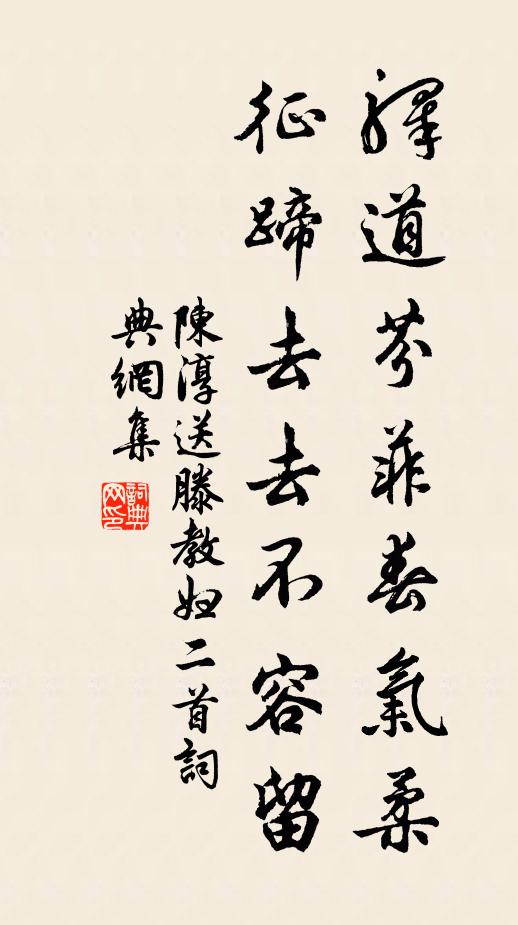 驛道芬菲春氣柔
征蹄去去不容留
陳淳送滕教妞二首詞
典網集
詞典
网印